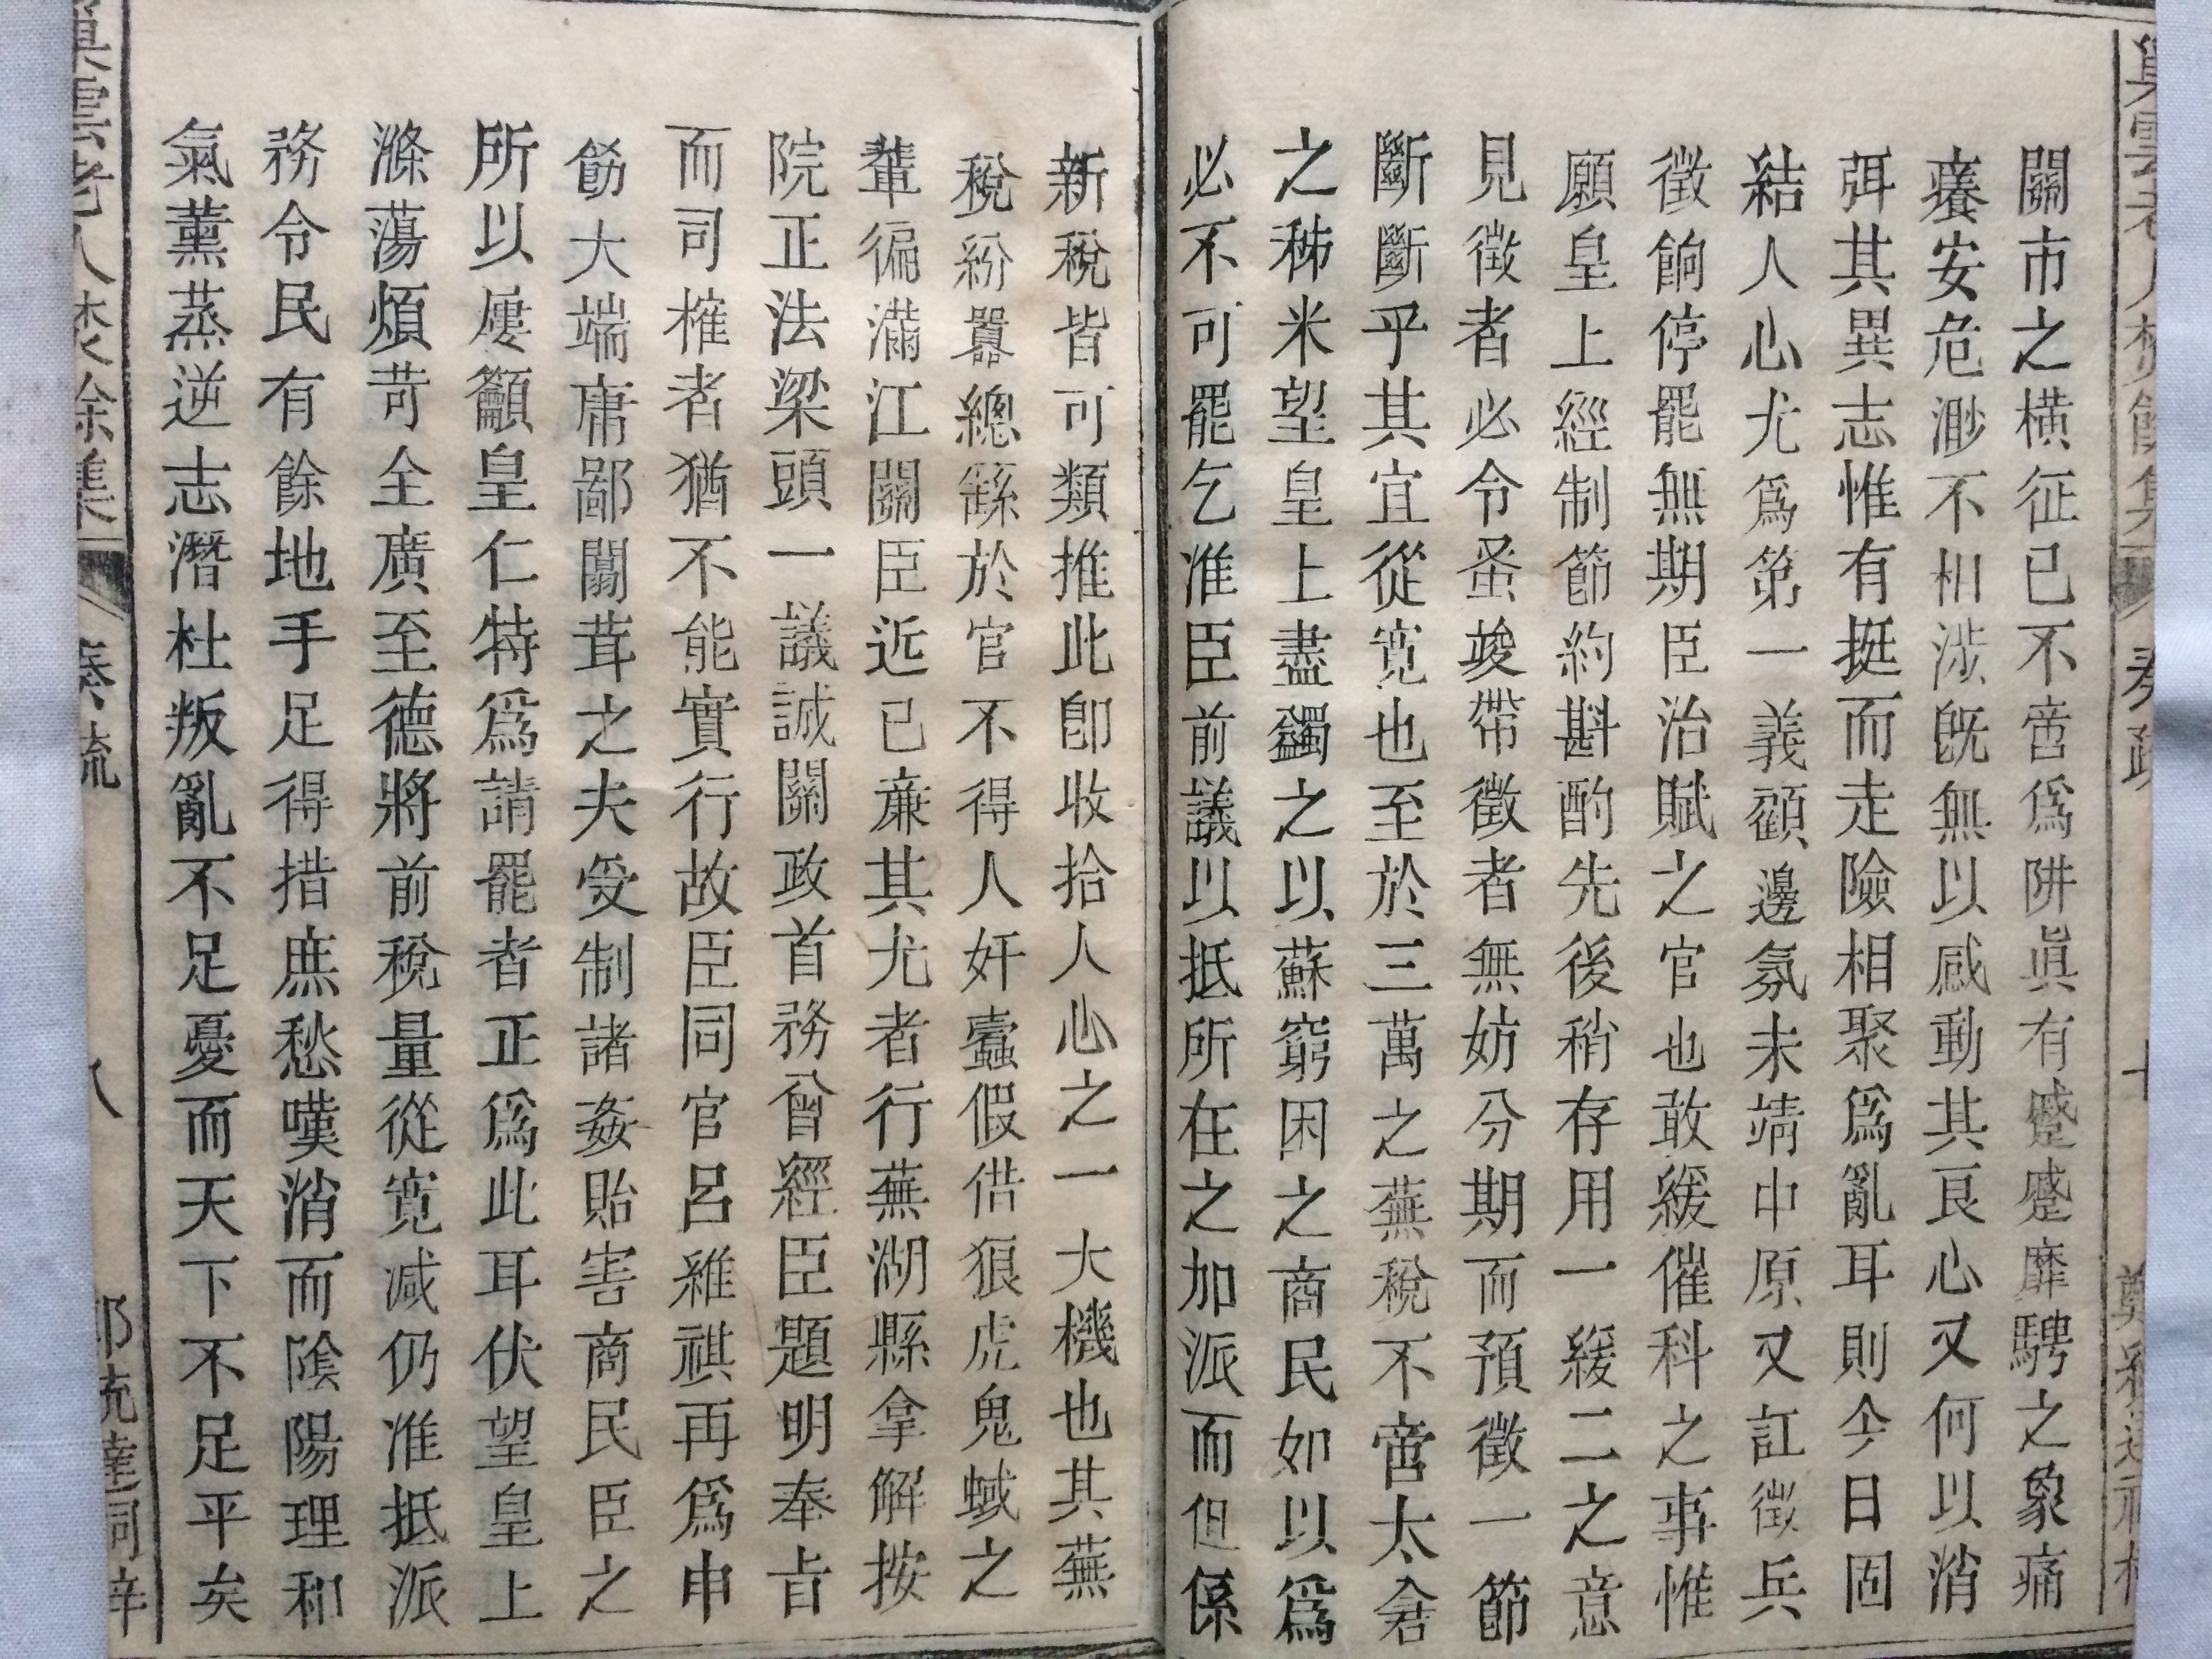 關市之橫征已不啻爲阱眞有蹙蹙靡騁之象痛
癢安危渺不相涉旣無以感動其良心又何以消
弭其異志惟有挺而走險相聚爲亂耳則今日固
結人心尤爲第一義顧邊氛未靖中原又訌徵兵
徵餉停罷無期臣治賦之官也敢緩催科之事惟
願皇上經制節約斟酌先後稍存用一緩二之意
見徵者必令蚤竣帶徵者無妨分期而預徵一節
斷斷乎其宜從寬也至於三萬之蕪稅不啻太倉
之稊米望皇上盡蠲之以蘇窮困之商民如以爲
必不可罷乞准臣前議以抵所在之加派而但係
新稅皆可類推此卽收拾人心之一大機也其蕪
稅紛囂總繇於官不得人奸蠹假借狼虎鬼蜮之
輩徧滿江關臣近已亷其尤者行蕪湖縣拿解按
院正法梁頭一議誠關政首務曾經臣題明奉旨
而司榷者猶不能實行故臣同官呂維祺再爲申
飭大端庸鄙闒茸之夫受制諸姦貽害商民臣之
所以屢籲皇仁特爲請罷者正爲此耳伏望皇上
滌蕩煩苛全廣至德將前稅量從寬减仍准抵派
務令民有餘地手足得措庶愁嘆消而陰陽理和
氣薰蒸逆志潛杜叛亂不足憂而天下不足平矣
老人焚餘集
奏疏
八